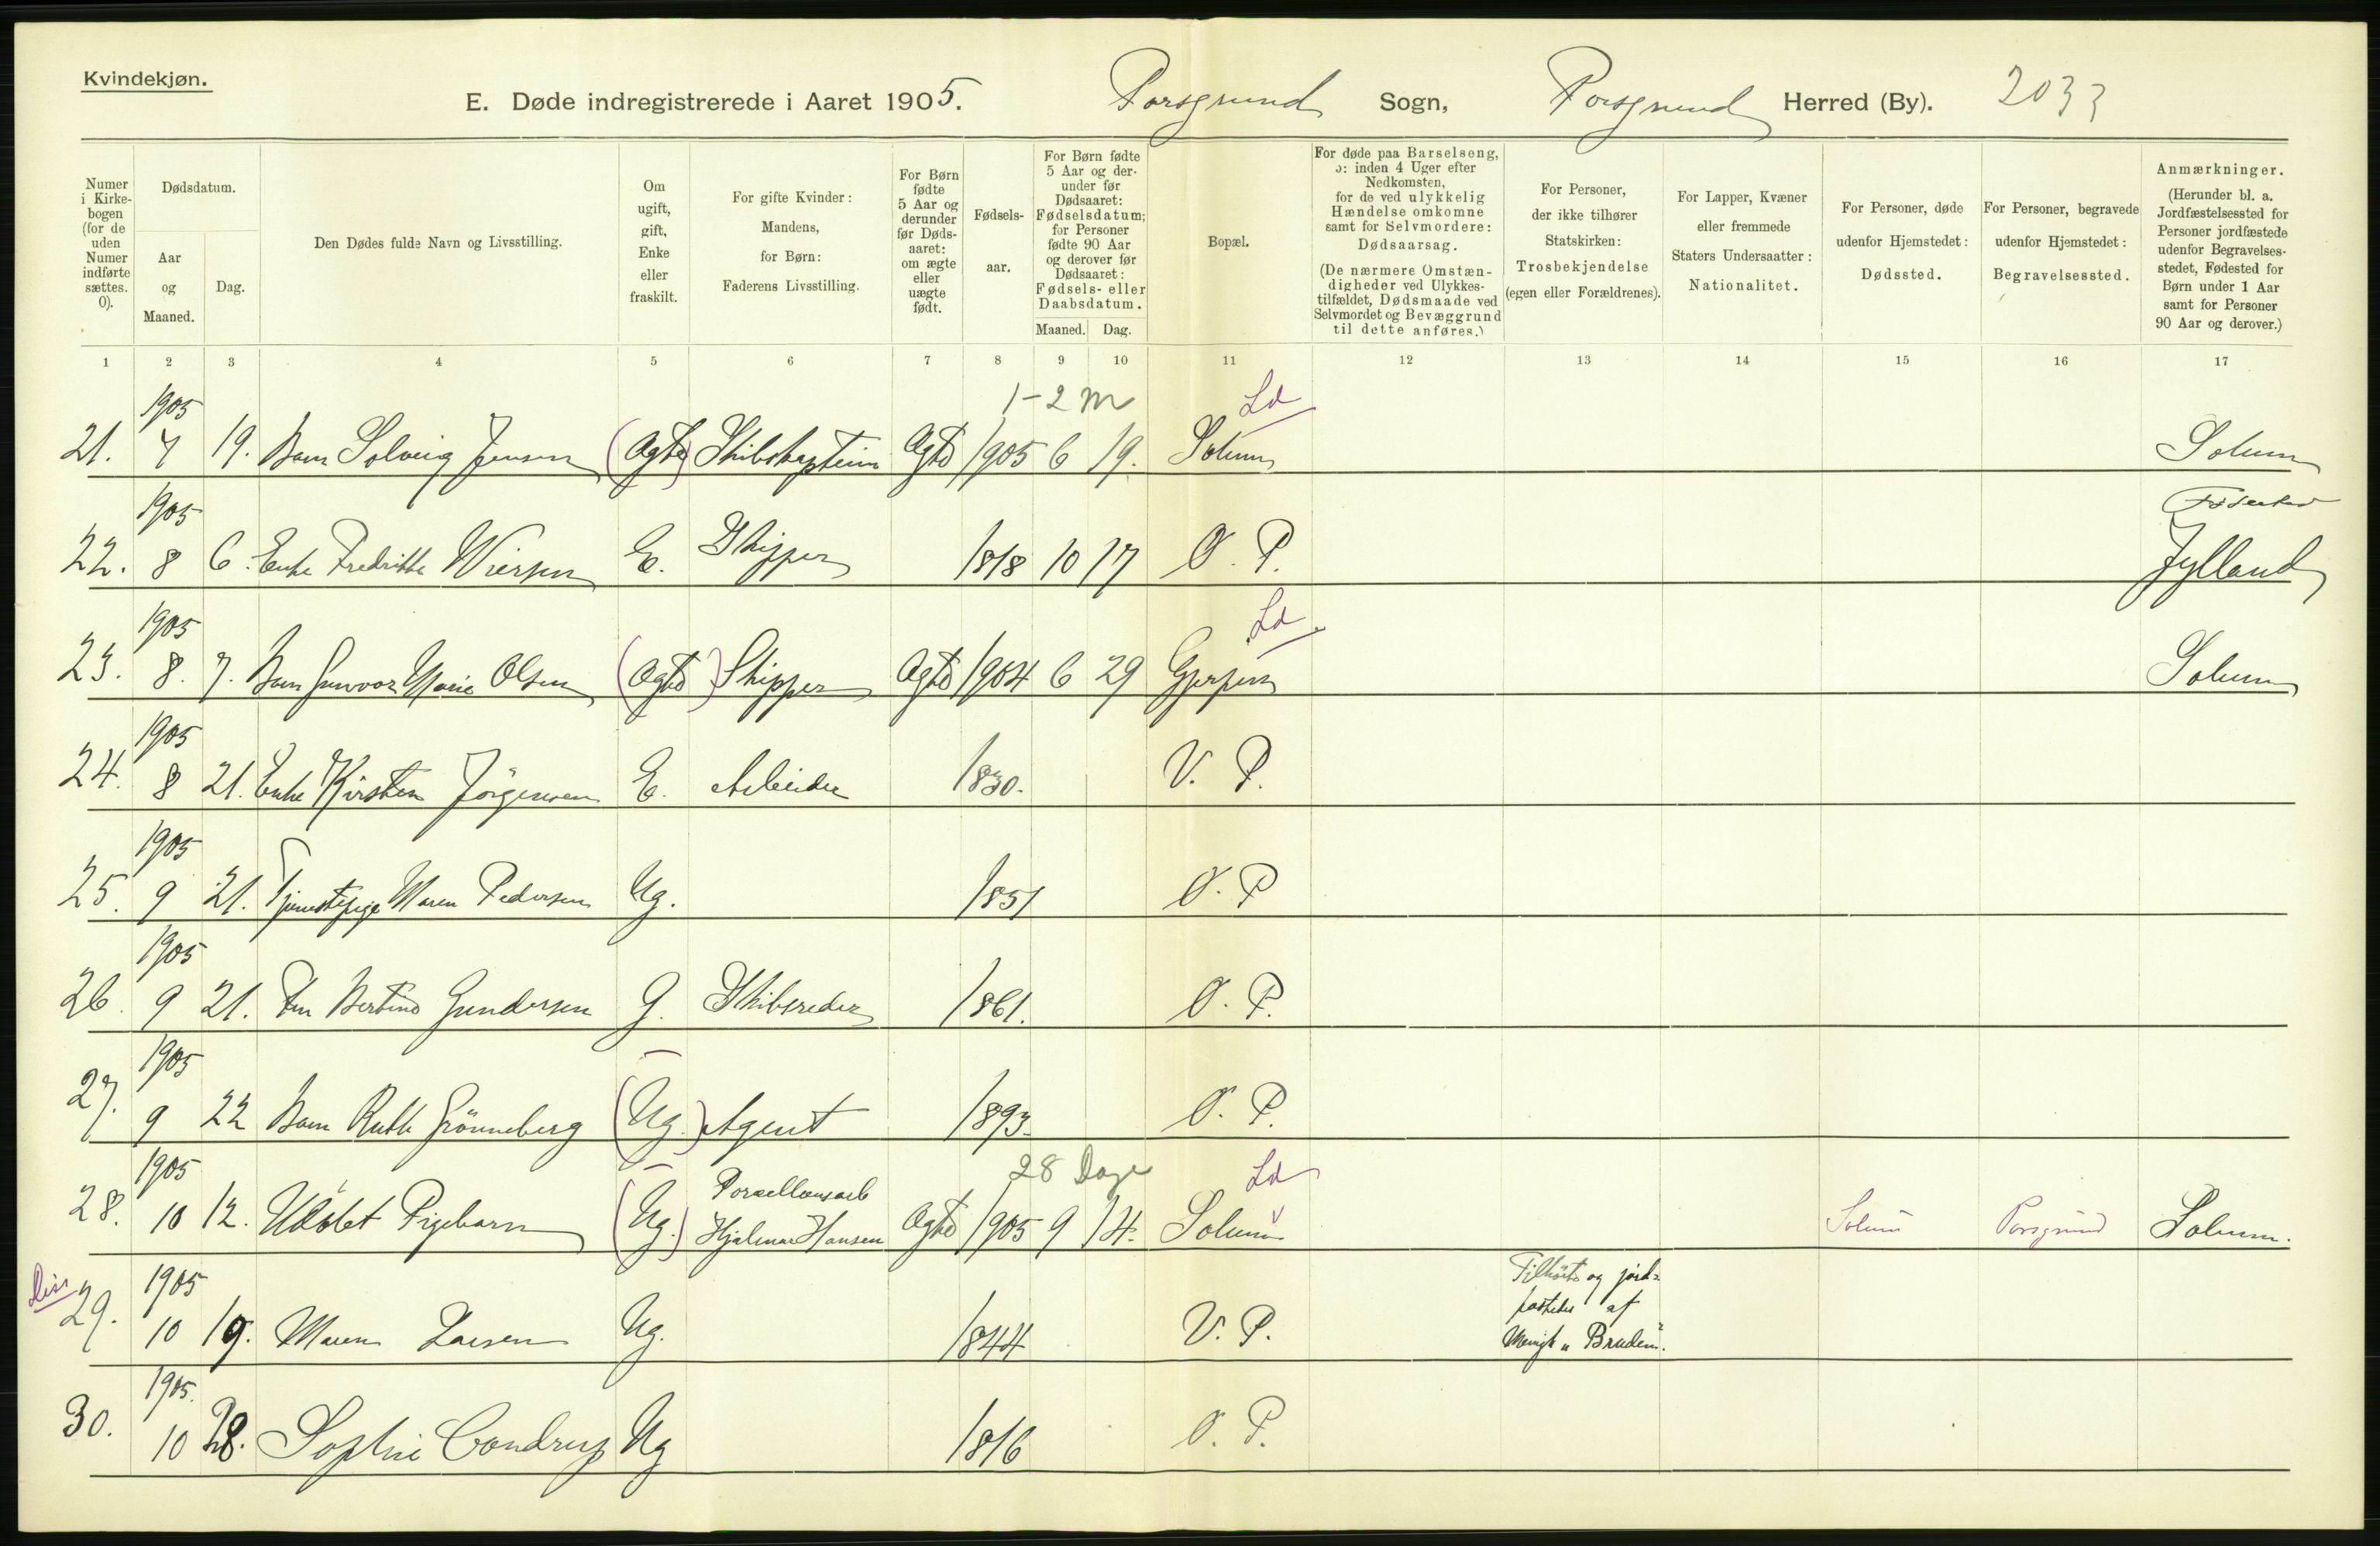 Kvindekjøn.
E. Døde indregistrerede i Aaret 1905. Porsgrund Sogn, Porsgrund Herred (By). 2033
Numer i Kirkebogen (for de uden Numer indførte sættes. 0).
Dødsdatum.
Aar og Maaned.
Dag.
Den Dødes fulde Navn og Livsstilling.
Om ugift, gift, Enke eller fraskilt.
For gifte Kvinder: Mandens, for Børn: Faderens Livsstilling.
For Børn fødte 5 Aar og derunder før Dødsaaret: om ægte eller uægte født.
Fødselsaar.
For Børn fødte 5 Aar og derunder før Dødsaaret: Fødselsdatum; for Personer fødte 90 Aar og derover før Dødsaaret: Fødsels- eller Daabsdatum.
Maaned. Dag.
Bopæl.
For døde paa Barselseng, ɔ: inden 4 Uger efter Nedkomsten, for de ved ulykkelig Hændelse omkomne samt for Selvmordere: Dødsaarsag.
(De nærmere Omstændigheder ved Ulykkestilfældet, Dødsmaade ved Selvmordet og Bevæggrund til dette anføres.)
For Personer, der ikke tilhører Statskirken: Trosbekjendelse (egen eller Forældrenes).
For Lapper, Kvæner eller fremmede Staters Undersaatter: Nationalitet.
For Personer, døde udenfor Hjemstedet: Dødssted.
For Personer, begravede udenfor Hjemstedet: Begravelsessted.
Anmærkninger.
(Herunder bl. a. Jordfæstelsessted for Personer jordfæstede udenfor Begravelsesstedet, Fødested for Børn under 1 Aar samt for Personer 90 Aar og derover.)
1 2 3 4 5 6 7 8 9 10 11 12 13 14 15 16 17
1905 1-2 m Ld
21. 7 19. Barn Solveig Jensen (Ægte) Skibskaptein Ægte 1905 6 19. Solum Solum
1905 Fødested
22. 8 6. Enke Fredrikke Wiersen E. Skipper 1818 10 17 Ø. P. Jylland
1905 Ld
23. 8. 7. Barn Gunvor Marie Olsen (Ægte) Skipper Ægte 1904 6 29 Gjerpen Solum
1905
24. 8 21. Enke Kirsten Jörgensen E. Arbeider 1830. V. P.
1905
25. 9 21. Tjenestepige Maren Pedersen Ug. 1851 Ø. P
1905
26. 9 21. Fru Bertine Gundersen G. Skibsreder 1861. Ø. P.
1905
27. 9 22 Barn Ruth Grönneberg (Ug.) Agent 1893. Ø. P.
1905 Porcellænsarb 28 Dage Ld
28. 10 12. Udöbt Pigebarn (Ug.) Hjalmar Hansen Ægte 1905 9 14. Solum Solum Porsgrund Solum.
Diss 1905 Tilhörte og jord-
fæstedes af
29. 10 19. Maren Larsen Ug. 1844 V. P. Menigh „Bruden".
1905.
30. 10 28. Sophie Condrup Ug 1816 Ø. P.